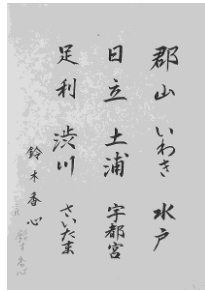 郡山 いわき 水戸
日立 土浦 宇都宮
足利 渋川 さいたま
鈴木香心